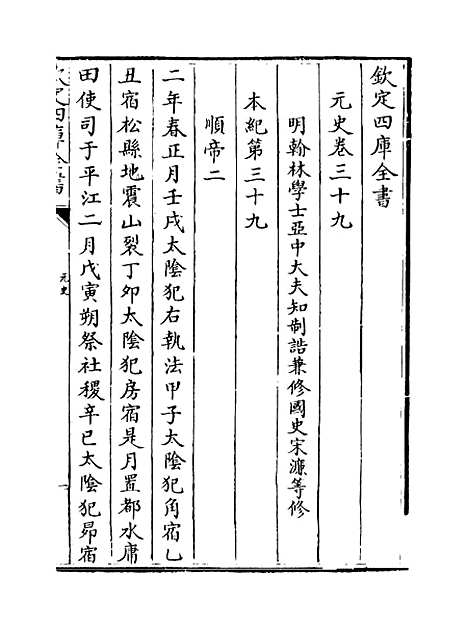 欽定四庫全書
元史卷三十九
明翰林學士亞中大夫知制誥兼修國史宋濂等修
本紀第三十九
順帝二
二年春正月壬戌太陰犯右執法甲子太陰犯角宿乙
丑宿松縣地震山裂丁夘太陰犯房宿是月置都水庸
田使司于平江二月戊寅朔祭社稷辛巳太陰犯昴宿
元史
一